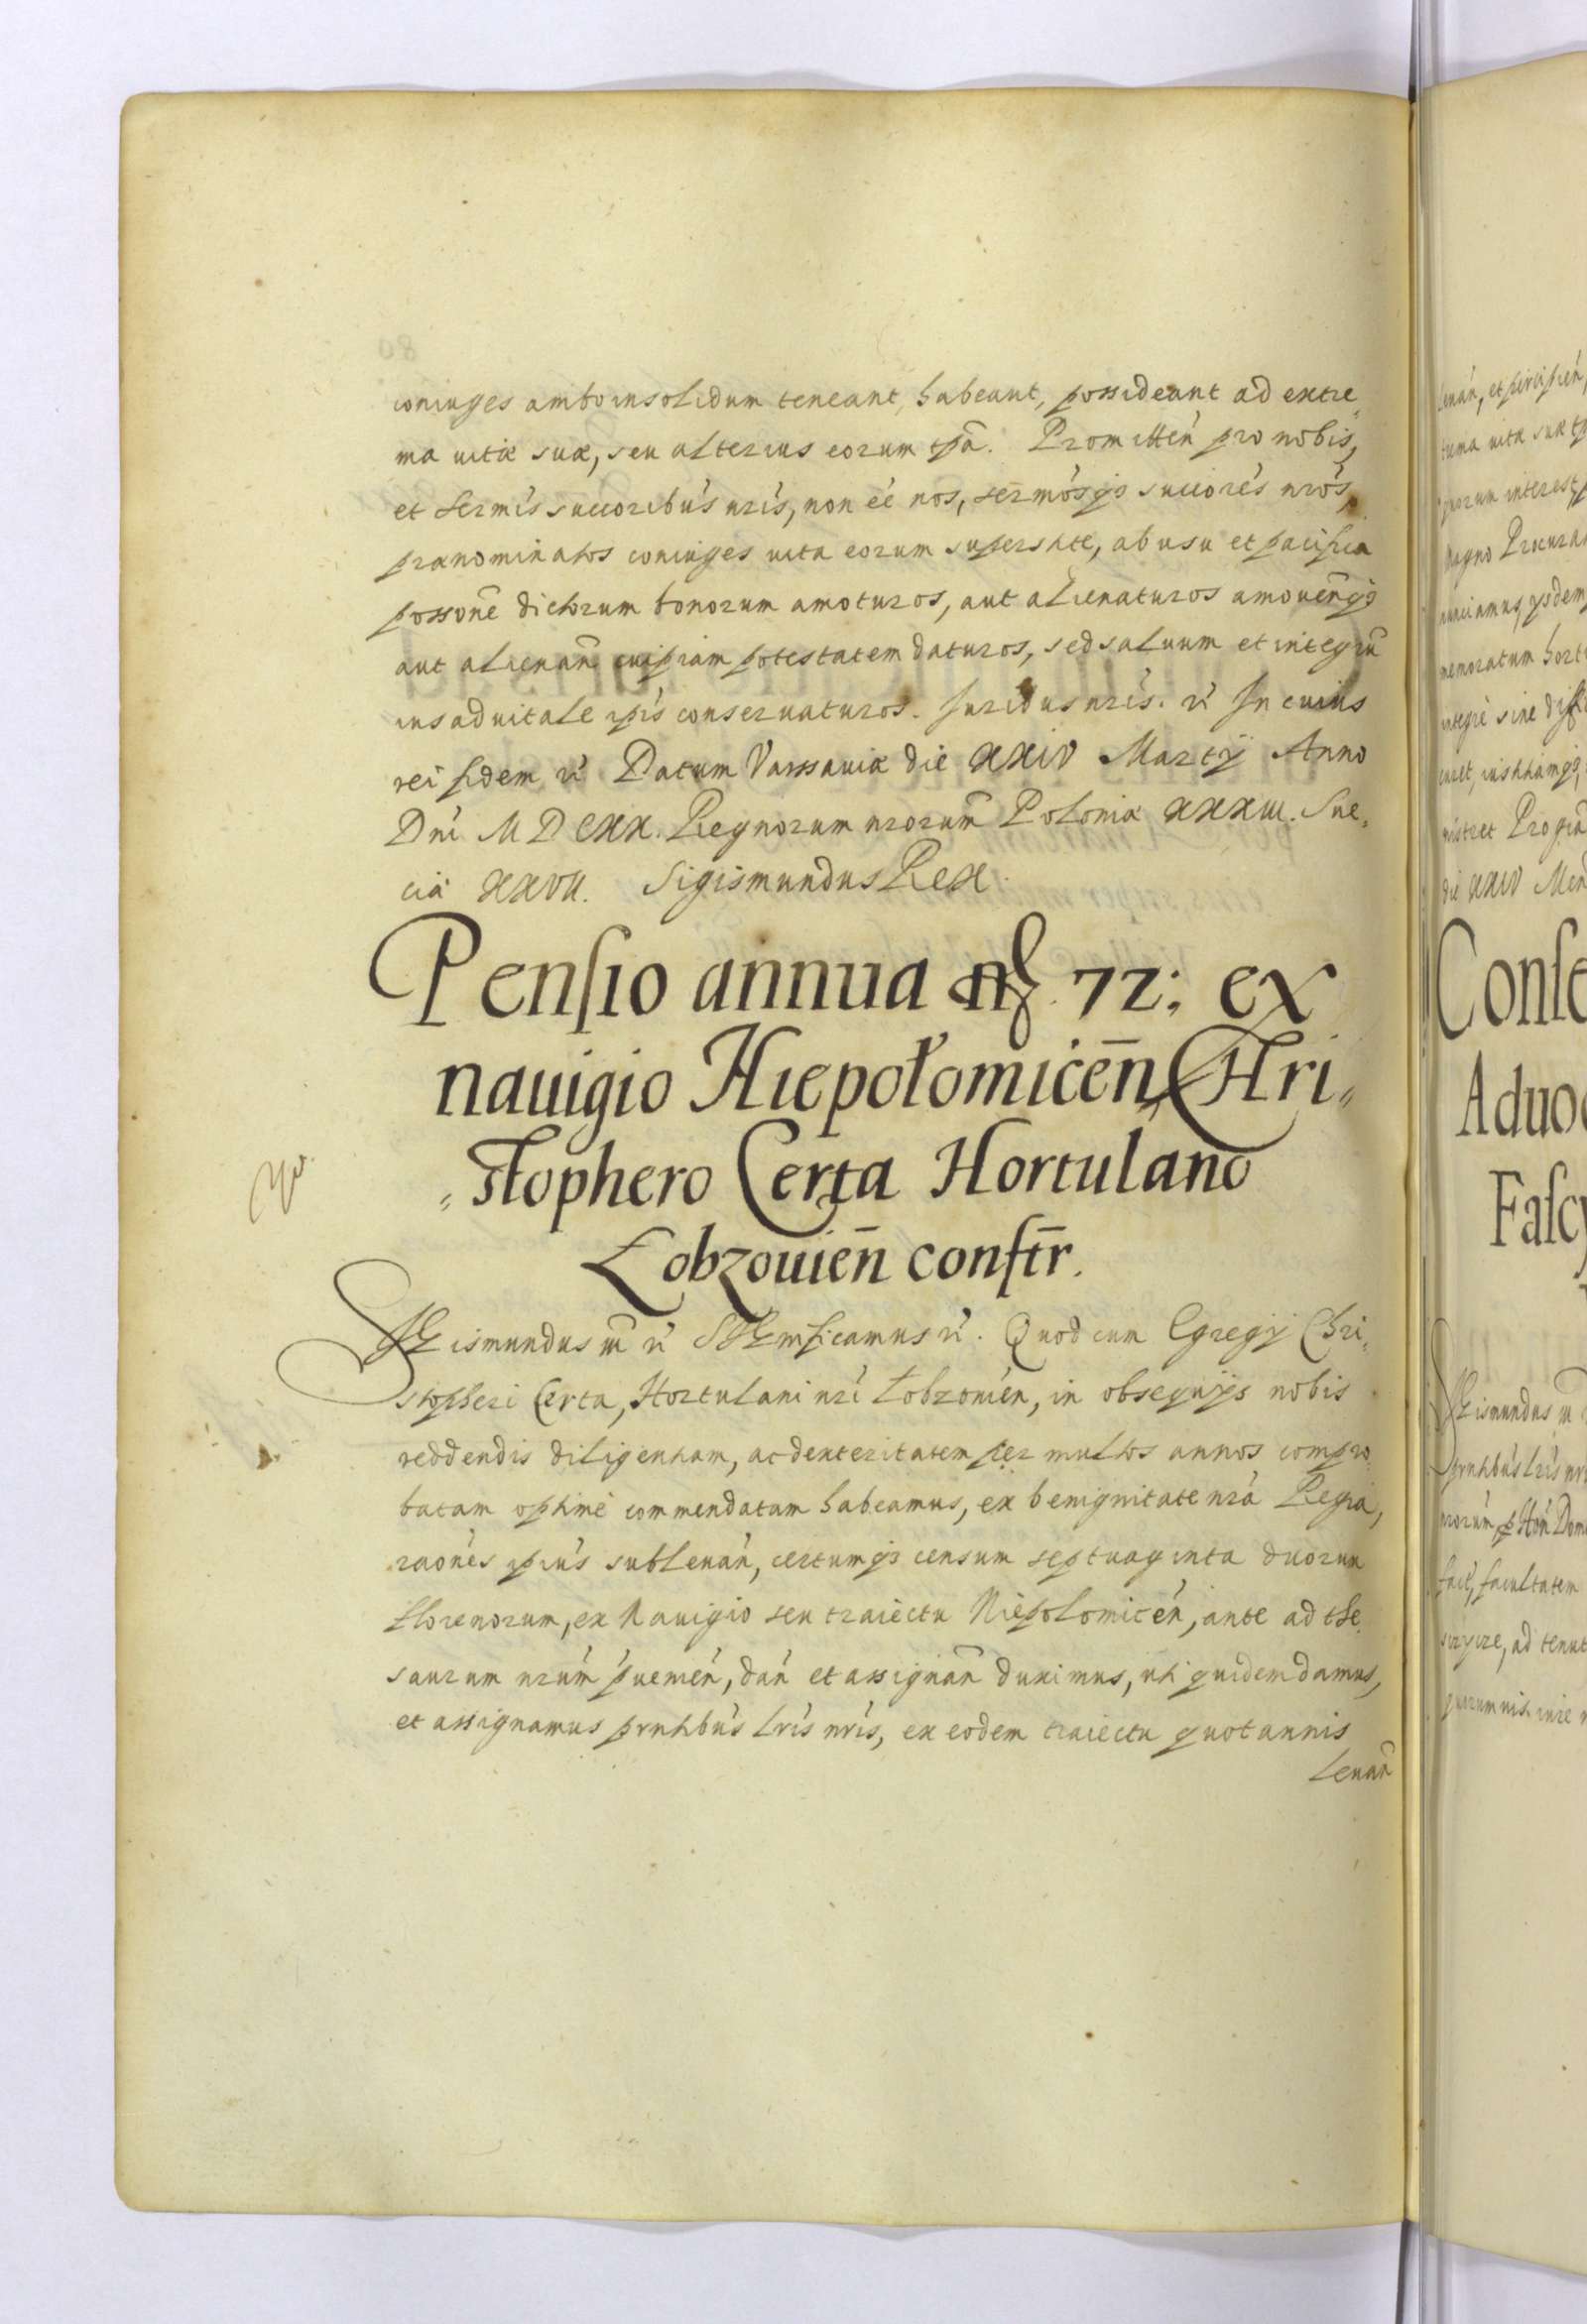 coniuges ambo insolidum teneant, habeant, possideant ad extre„
ma uitæ suæ, seu alterius eorum tp̃a. Promitteń pro nobis,
et Sermís succoribús nrís, non eé nos, sermósq́₃ succorés nrós,
prænominatos coniuges uita eorum superstite, ab usu et pacifica
possoñe dictorum bonorum amoturos, aut alienaturos amouenq̃₃
aut alienañ cuipiam potestatem daturos, sed saluum et integrũ
ius aduitale ipís conseruaturos. Juribus nrís. ŕc In cuius
rei fidem ŕc Datum Varssauiæ die XXIV Martij Anno
Dní MDCXX. Regnorum nrorum̃ Poloniæ XXXIII. Sue,
ciæ XXVII. Sigismundus Rex.
Pensio annua fl. 72: ex
nauigio Niepołomiceñ Chri„
„stophero Certa Hortulano
Łobzouieñ confr̃.
Sigismundus III ŕc Significamus ŕc. Quod cum Egregij Chri„
stopheri Certa, Hortulani nrí Łobzouień, in obsequijs nobis
reddendis diligentiam, ac dexteritatem per multos annos compro„
batam optimé commendatam habeamus, ex benignitate nrá Regia,
raonés ipiús subleuań, certumq́₃ censum septuaginta duorum
florenorum, ex Nauigio seu traiectu Niepolomiceń, ante ad the„
saurum nrúm p̃uenień, dań et assignañ duximus, uti quidem damus,
et assignamus prntibús lrís nrís, ex eodem traiectu quotannis
leuañ
leuań, et percipień,
trema uitæ suæ tp
quorum interest, p
Magno Procurat
nunciamus, ysdem
memoratum hortu
integré sine diffi
curet, iustitiamq́₃,
nistret Pro gra
die XXIV Men
Conse
Aduoc
Fascy
Sigismundus III
prntibús lrís nr
nrorum̃, p Hoń Dom
facé, facultatem